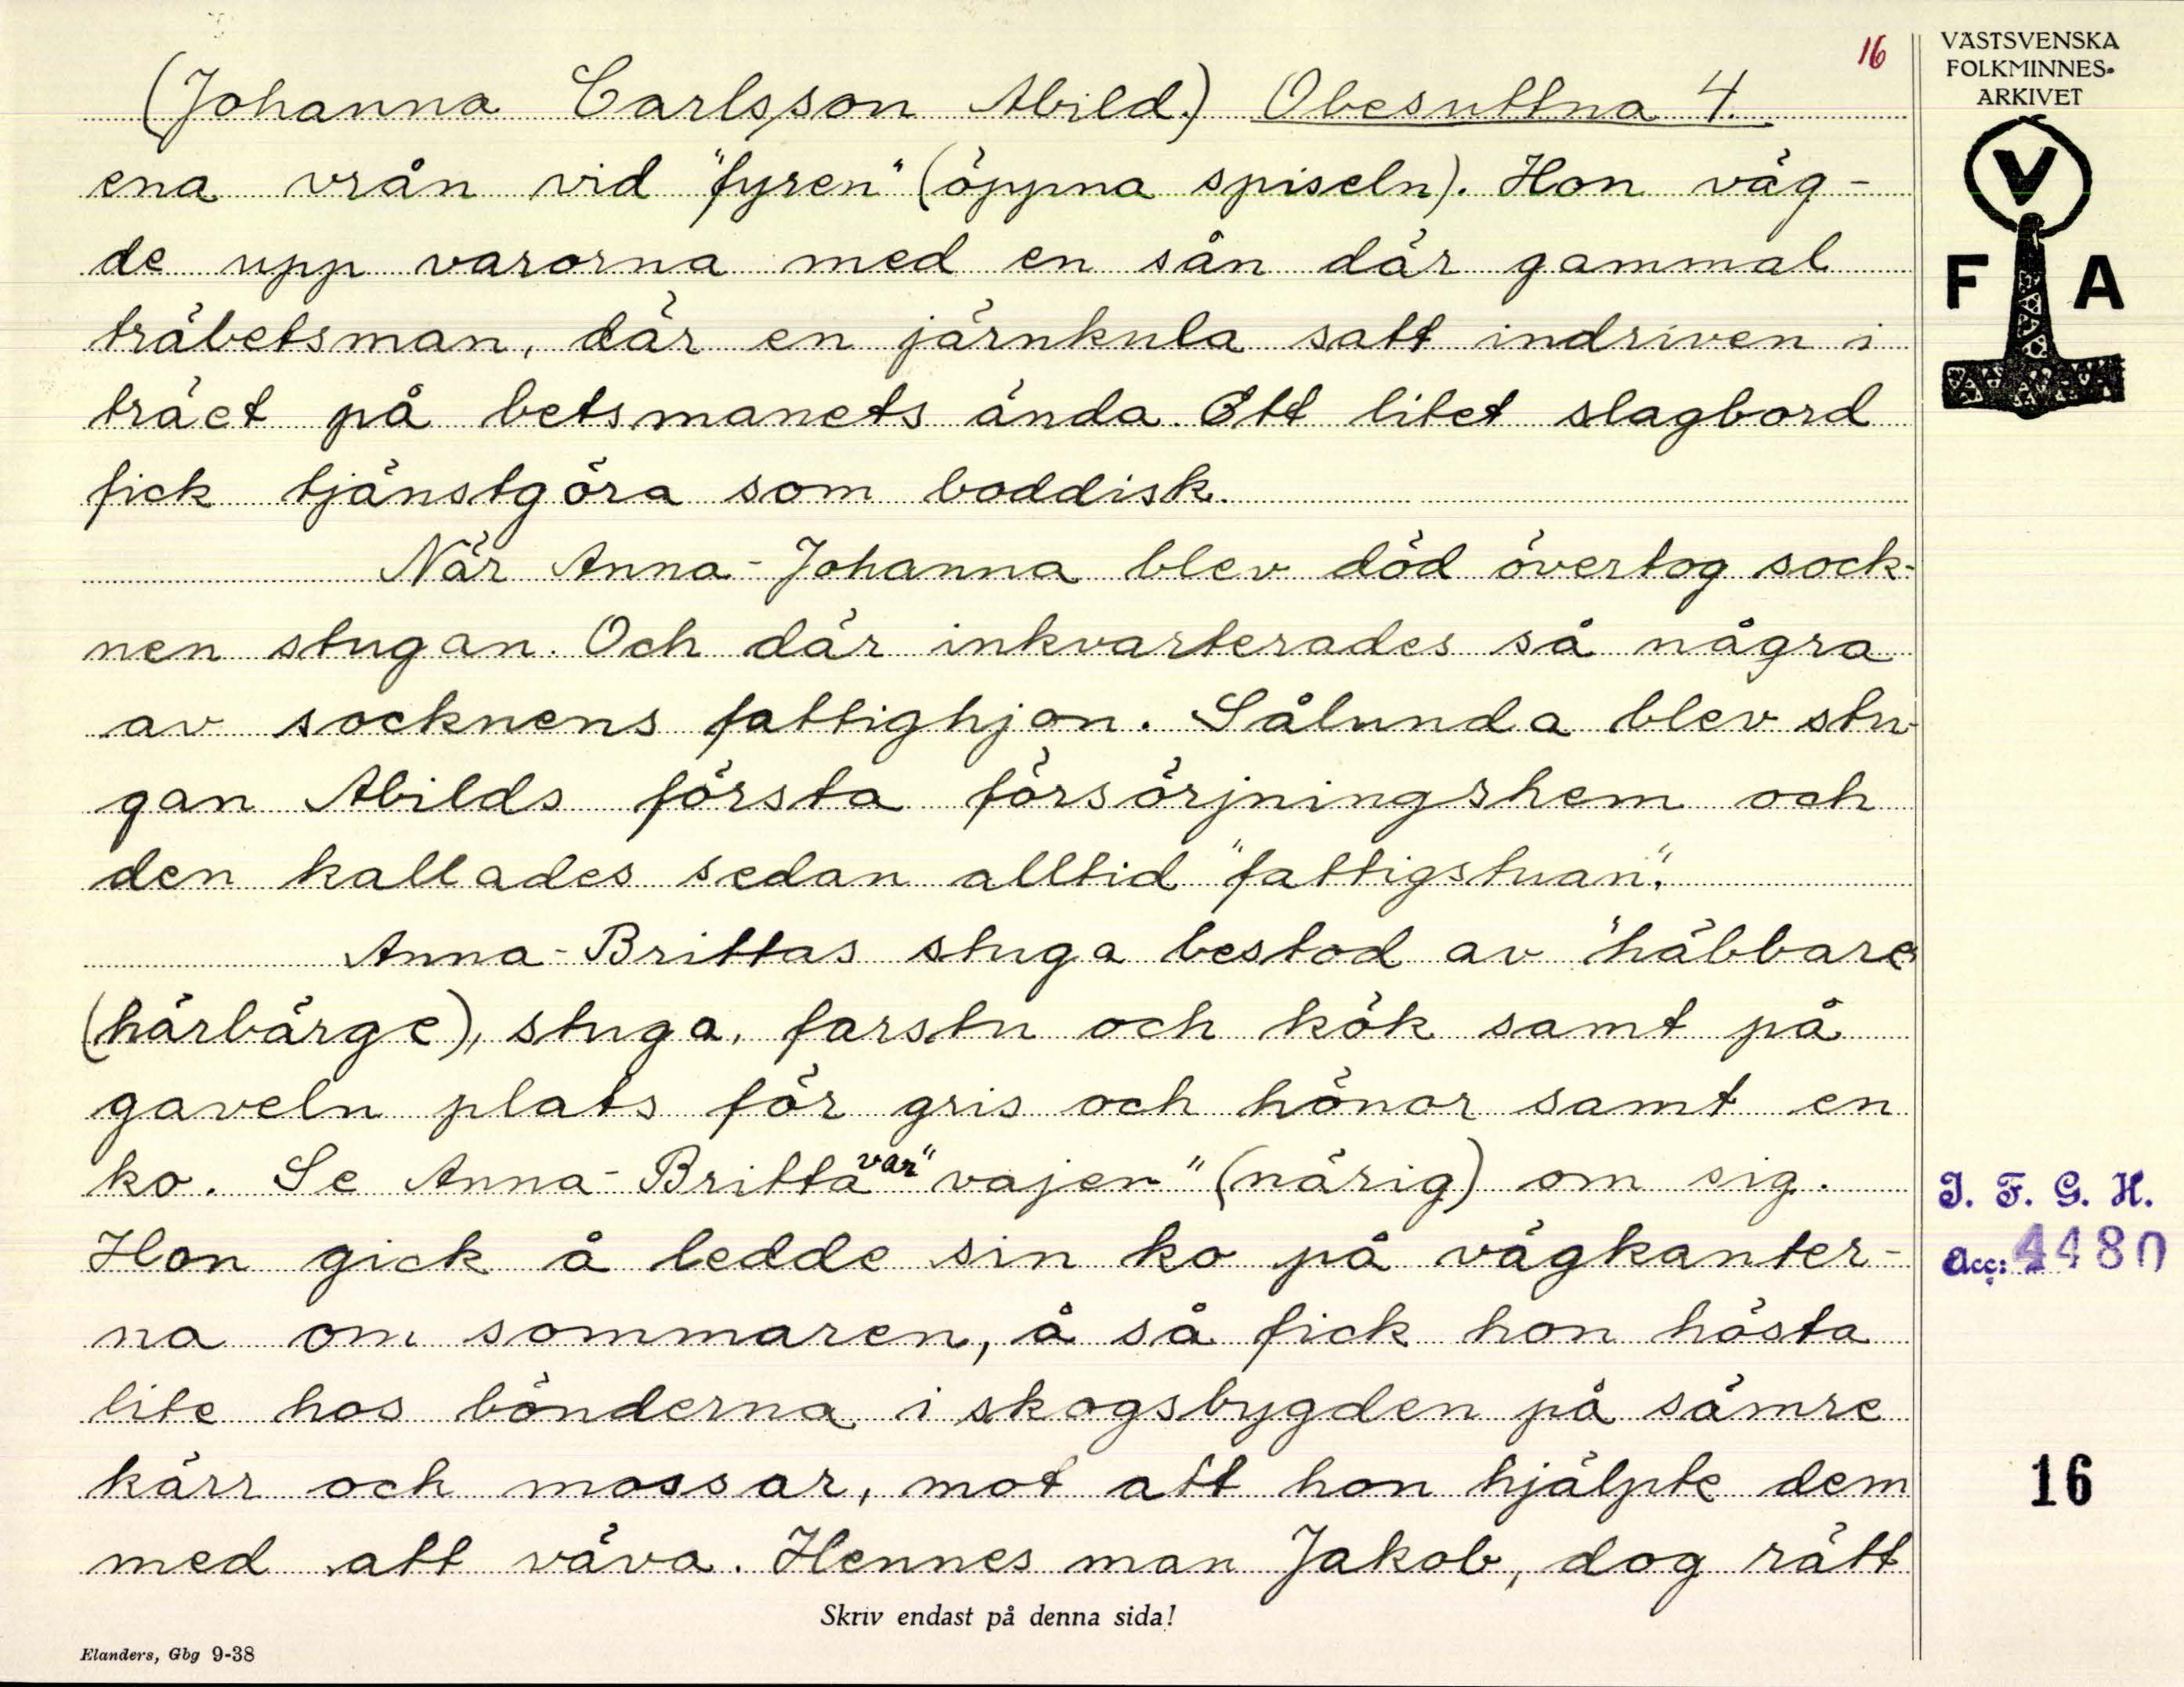 16
(Johanna Carlsson Abild.) Obesuttna 4.
ena vrån vid "fyren" (öppna spiseln). Hon väg-
de upp varorna med en sån där gammal
träbetsman, där en järnkula satt indriven i
träet på betsmanets ända. Ett litet slagbord
fick tjänstgöra som boddisk.
När Anna-Johanna blev död övertog sock-
nen stugan. Och där inkvarterades så några
av socknens fattighjon. Sålunda blev stu-
gan Abilds första försörjningshem och
den kallades sedan alltid "fattigstuan".
Anna-Brittas stuga bestod av "häbbare
(härbärge), stuga, farstu och kök samt på
gaveln plats för gris och hönor samt en
ko. Se Anna-Britta var "vajen" (närig) om sig.
Hon gick å ledde sin ko på vägkanter-
na om sommaren, å så fick hon hösta
lite hos bönderna i skogsbygden på sämre
kärr och mossar, mot att hon hjälpte dem
med att väva. Hennes man Jakob, dog rätt
Skriv endast på denna sida!
Elanders, Gbg 9-38
VÄSTSVENSKA
FOLKMINNES-
ARKIVET
V
F A
I. F. G. H.
Acc: 4480
16